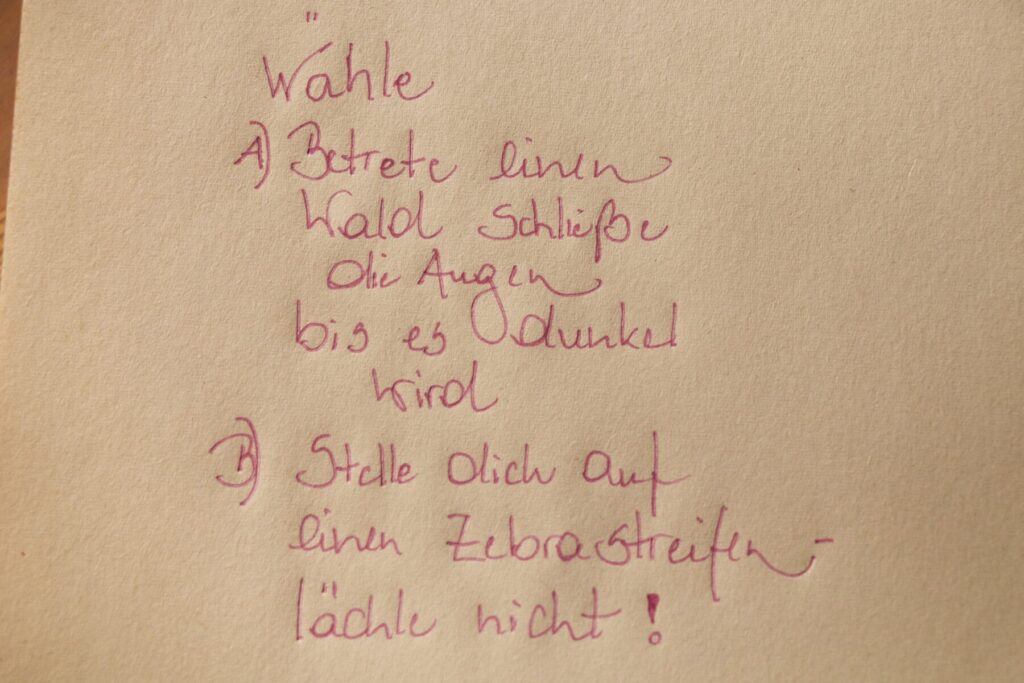 Wähle
A) Betrete einen
Wald schließe
die Augen
bis es dunkel
wird
B) Stelle dich auf
einen Zebrastreifen -
lächle nicht!